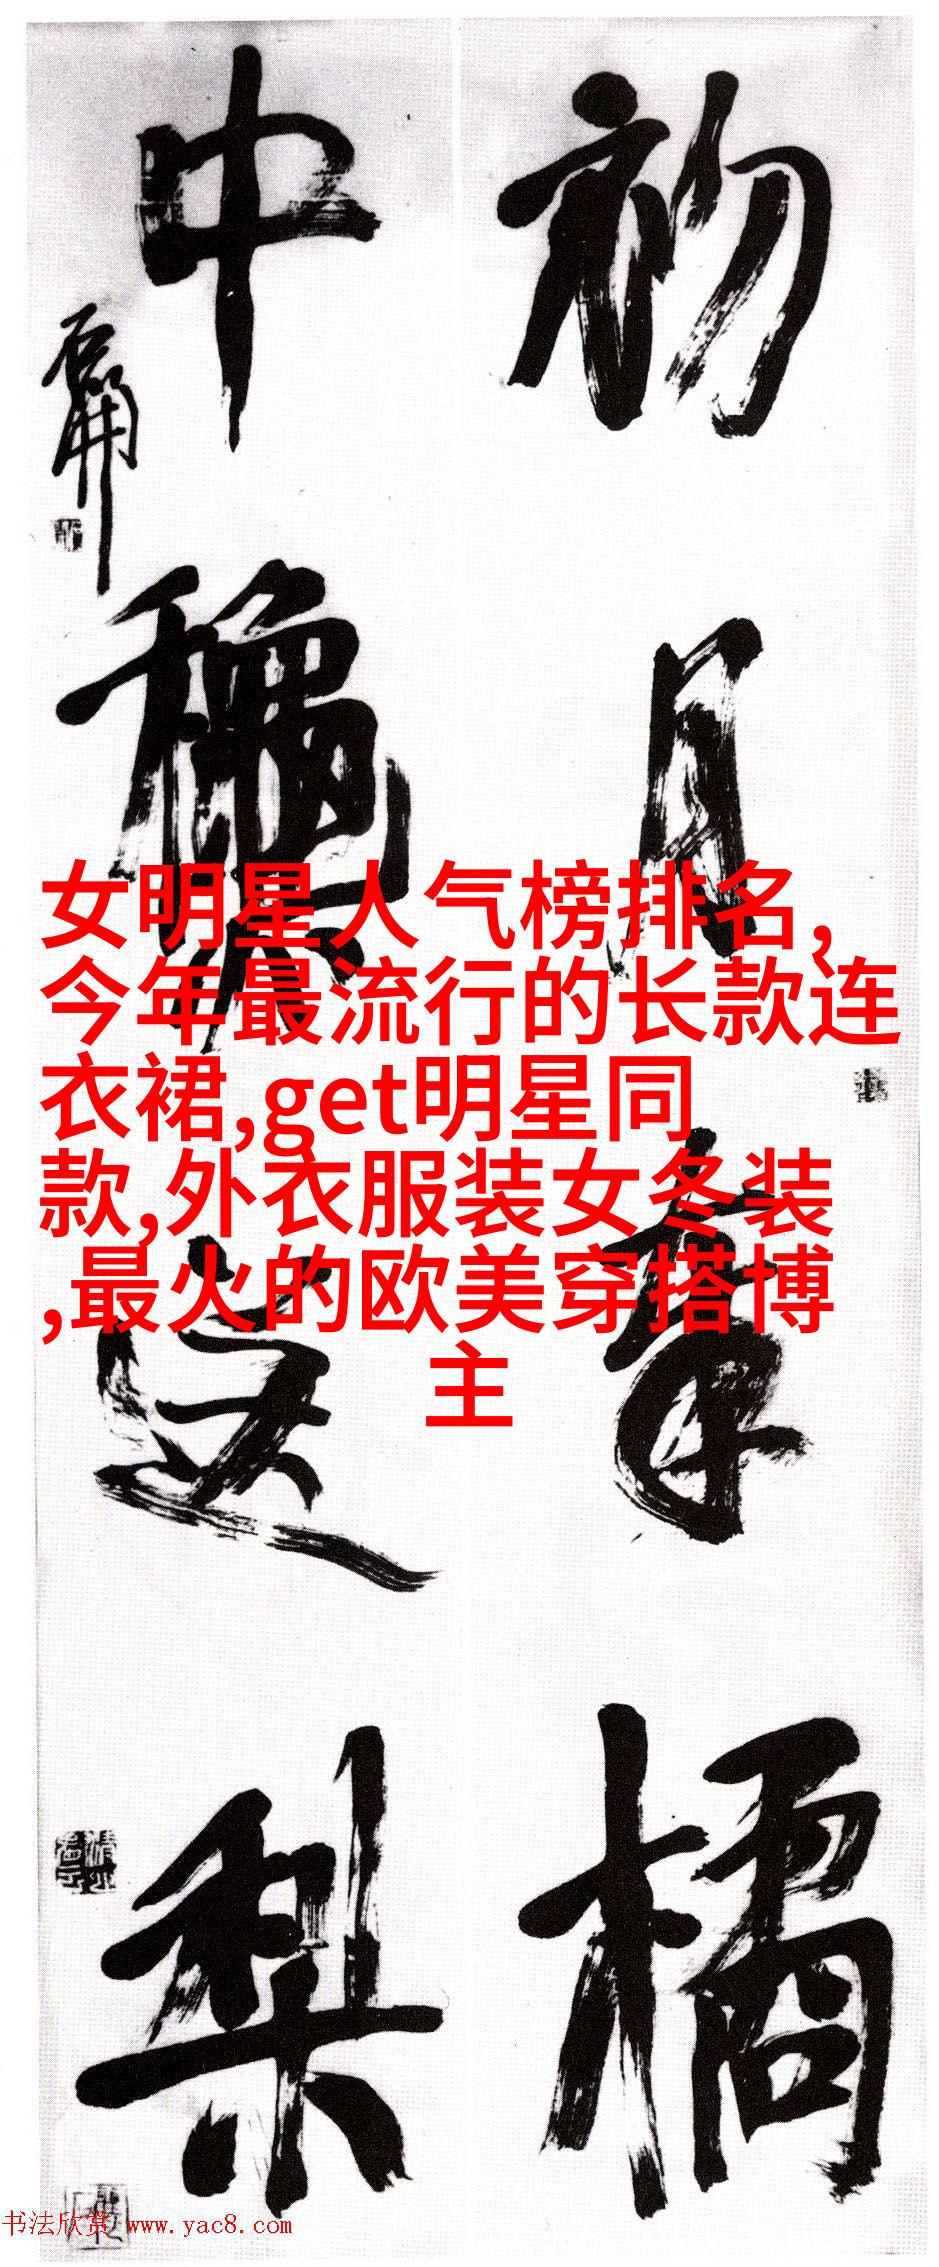 初月橘
中梨
女明星人气榜排名,
今年最流行的长款连
衣裙,get明星同
款,外衣服装女冬装
,最火的欧美穿搭博
主
书法欣赏 www.yac8.com